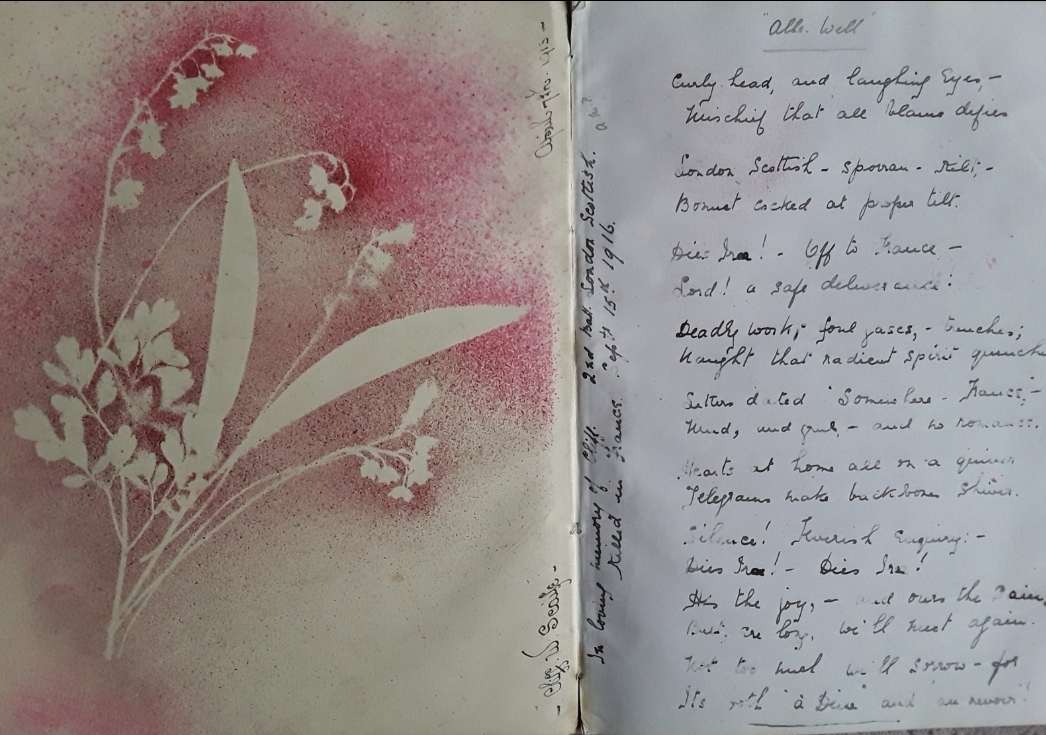 "Alls. Well"
Curly head, and laughing Eyes, -
Mischief that all blame defies
London Scottish - sporran - Kilt; -
Bonnet cocked at proper tilt.
Dies Irae! - Off to France -
Lord! a safe deliverance!
Deadly work; foul gases, - trenches;
Naught that radient spirit quenches
Letters dated "Somewhere - France," -
Mud, and - and no romance.
Hearts at home all on a quiver
Telegrams make backbones shiver.
Silence! Feverish Enquiry: -
Dies Irae! - Dies Irae!
His the joy, - and ours the Pain,
But, ere long, we'll meet again.
Not too much we'll sorrow - for
Its both "à Dieu" and "au revoir"!
In loving memory of Cliff. 2nd Batt. London Scottish.
Killed in France. Sept 15th 1916.
1913 -